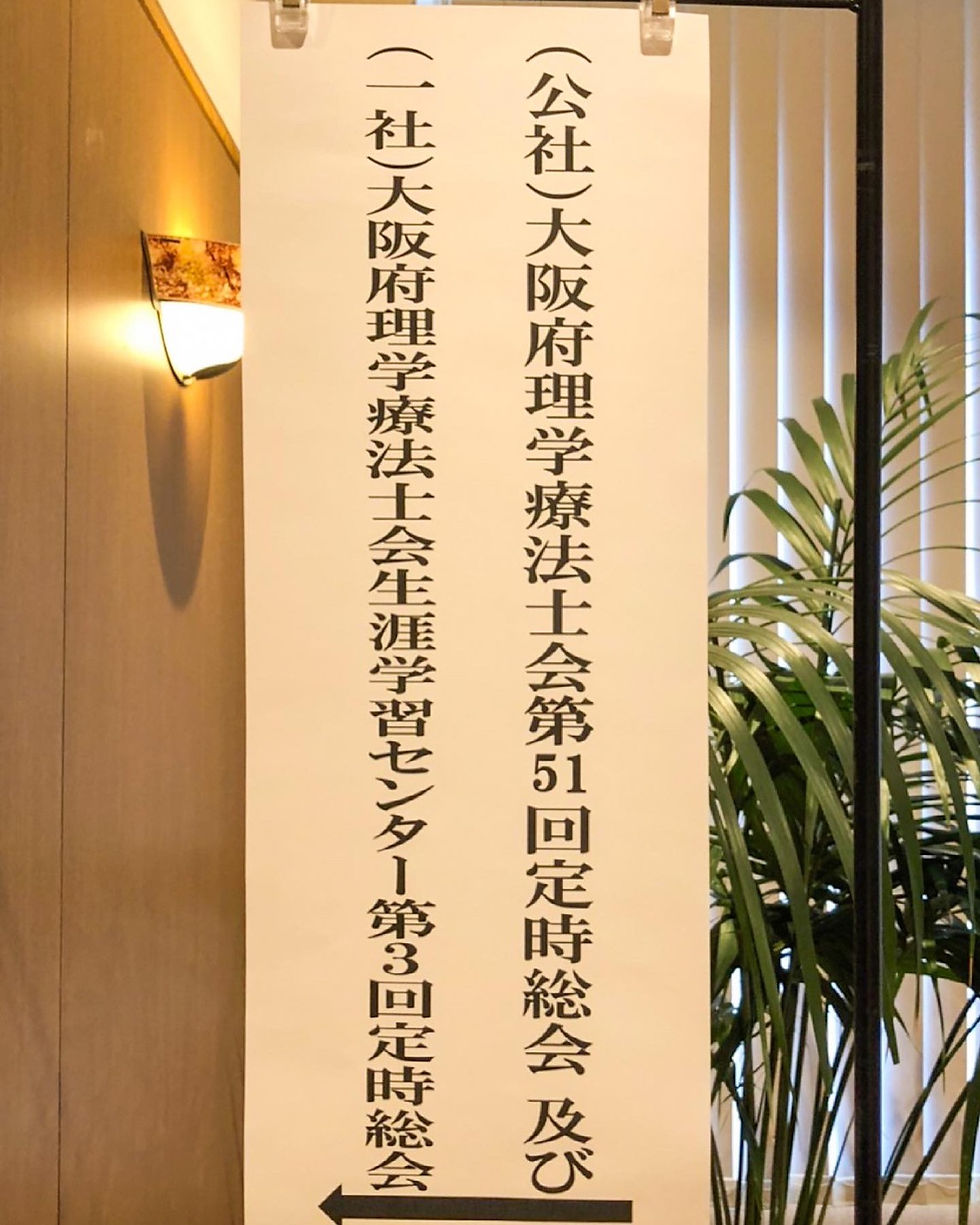 （公社）大阪府理学療法士会第51回定時総会 及び
（一社）大阪府理学療法士会生涯学習センター第3回定時総会